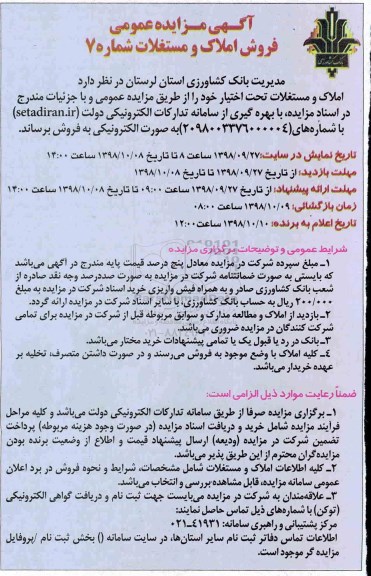 آگهی مزایده عمومی
فروش املاک و مستغلات شماره ۷
مدیریت بانک کشاورزی استان لرستان در نظر دارد
املاک و مستغلات تحت اختیار خود را از طریق مزایده عمومی و با جزئیات مندرج
در اسناد مزایده، با بهره گیری از سامانه تدارکات الکترونیکی دولت (setadiran.ir)
با شماره‌های(۲۰۹۸۰۰۳۳۷۶۰۰۰۰۰۴)به صورت الکترونیکی به فروش برساند.
تاریخ نمایش در سایت:۱۳۹۸/۰۹/۲۷ ساعت ۸ تا تاریخ ۱۳۹۸/۱۰/۰۸ ساعت ۱۴:۰۰
مهلت بازدید: از تاریخ ۱۳۹۸/۰۹/۲۷ تا تاریخ ۱۳۹۸/۱۰/۰۸
مهلت ارائه پیشنهاد: از تاریخ ۱۳۹۸/۰۹/۲۷ ساعت ۰۹:۰۰ تا تاریخ ۱۳۹۸/۱۰/۰۸ ساعت ۱۴:۰۰
زمان بازگشائی: ۱۳۹۸/۱۰/۰۹ ساعت ۰۸:۰۰
تاریخ اعلام به برنده: ۱۳۹۸/۱۰/۱۰ ساعت ۱۲:۰۰
شرایط عمومی و توضیحات برگزاری مزایده
۱ـ مبلغ سپرده شرکت در مزایده معادل پنج درصد قیمت پایه مندرج در آگهی می‌باشد
که بایستی به صورت ضمانتنامه شرکت در مزایده به صورت صددرصد وجه نقد صادره از
شعب بانک کشاورزی صادر و به همراه فیش واریزی خرید اسناد شرکت در مزایده به مبلغ
۲۰۰/۰۰۰ ریال به حساب بانک کشاورزی، با سایر اسناد شرکت در مزایده ارائه گردد.
۲ـ بازدید از املاک و مطالعه مدارک و سوابق مربوطه قبل از شرکت در مزایده برای تمامی
شرکت کنندگان در مزایده ضروری می‌باشد.
۳ـ بانک در رد یا قبول یک یا تمامی پیشنهادات خرید مختار می‌باشد.
۴ـ کلیه املاک با وضع موجود به فروش می‌رسند و در صورت داشتن متصرف، تخلیه بر
عهده خریدار می‌باشد.
ضمناً رعایت موارد ذیل الزامی است:
۱ـ برگزاری مزایده صرفا از طریق سامانه تدارکات الکترونیکی دولت می‌باشد و کلیه مراحل
فرآیند مزایده شامل خرید و دریافت اسناد مزایده (در صورت وجود هزینه مربوطه) پرداخت
تضمین شرکت در مزایده (ودیعه) ارسال پیشنهاد قیمت و اطلاع از وضعیت برنده بودن
مزایده‌گران محترم از این طریق پذیر می‌باشد.
۲ـ کلیه اطلاعات املاک و مستغلات شامل مشخصات، شرایط و نحوه فروش در برد اعلان
عمومی سامانه مزایده، قابل مشاهده بررسی و انتخاب می‌باشد.
۳ـ علاقه‌مندان به شرکت در مزایده می‌بایست جهت ثبت نام و دریافت گواهی الکترونیکی
(توکن) با شماره‌های ذیل تماس حاصل نمایند:
مرکز پشتیبانی و راهبری سامانه: ۴۱۹۳۱-۰۲۱
اطلاعات تماس دفاتر ثبت نام سایر استان‌ها، در سایت سامانه () بخش ثبت نام /پروفایل
مزایده گر موجود است.